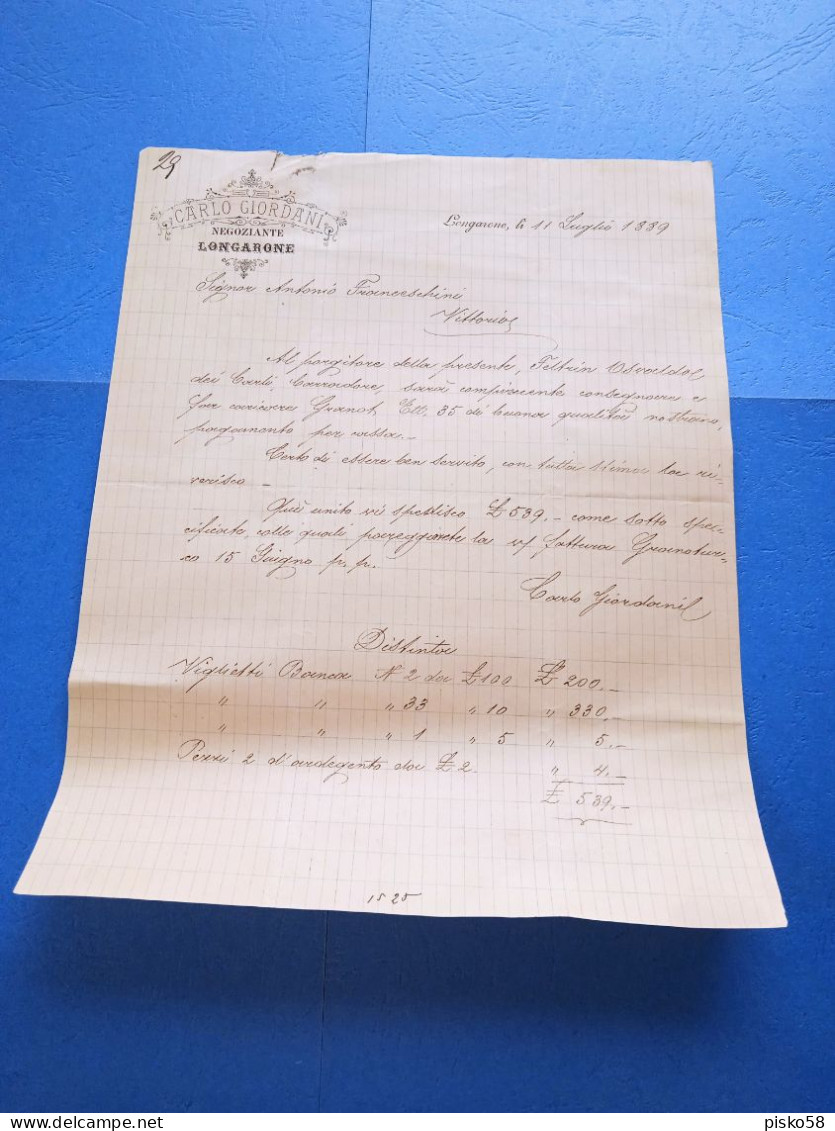 29
CARLO GIORDANI
NEGOZIANTE
LONGARONE
Longarone, li 11 Luglio 1889
Signor Antonio Franceschini
Vittorio
Al porgitore della presente, Feltrin Osvaldo
dei Carli, Carradore, sarà compiacente consegnare e
far carivare Granot. Ett. 35 di buona qualità nostrana,
pagamento per cassa.—
Certo di essere ben servito, con tutta stima la ri-
verisco —
Quì unito vi spedisco £ 539.— come sotto spe-
cificate, colle quali pareggerete la v/ fattura Granotur-
co 15 Giugno p. p.
Carlo Giordani
Distinta
Viglietti Banca N 2 da £ 100 £ 200.—
" " " 33 " 10 " 330.—
" " " 1 " 5 " 5.—
Pezzi 2 d'ardegento da £ 2. " 4.—
£ 539.—
15 25
pisko58